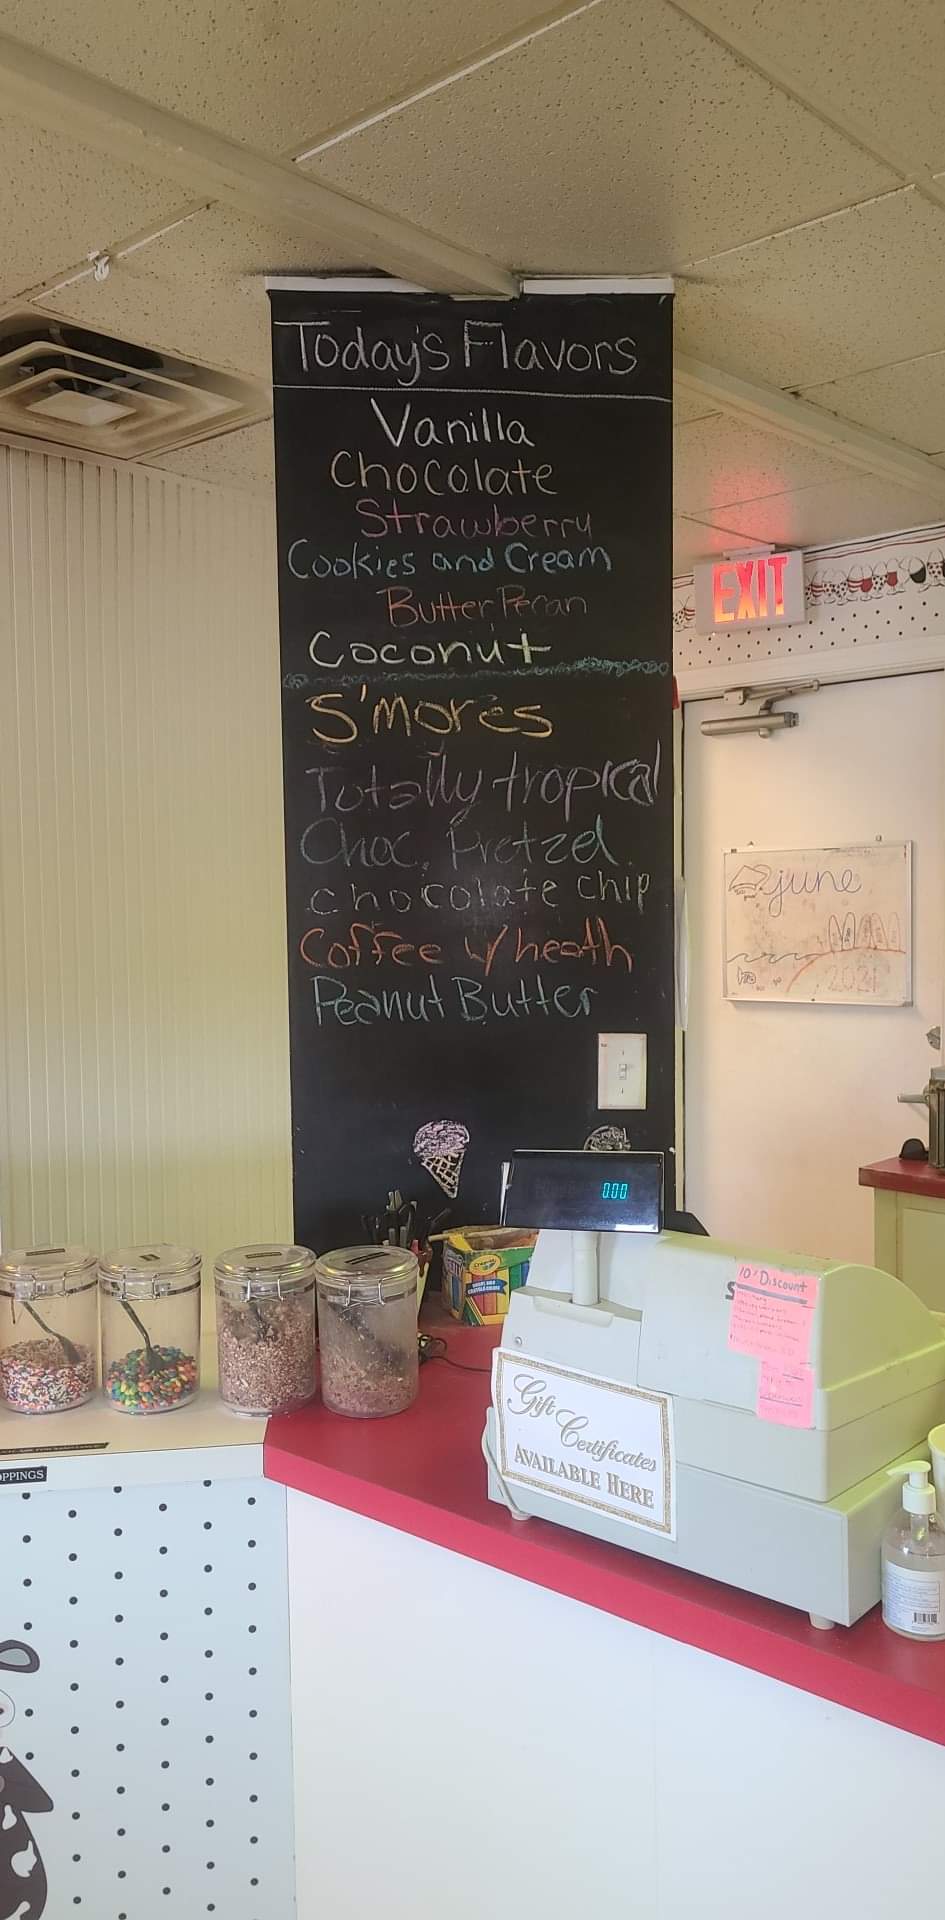 Today's Flavors
Vanilla
Chocolate
Strawberry
Cookies and Cream
Butter Pecan
Coconut
S'mores
Totally tropical
Choc. Pretzel
chocolate chip
Coffee w/ heath
Peanut Butter
EXIT
june
2021
0.00
Crayola
10% Discount
Gift
Certificates
AVAILABLE HERE
OPPINGS